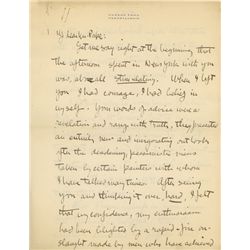 My dear Mr. Pape:
Let me say right at the beginning that
the afternoon spent in New York with you
was, above all stimulating. When I left
you I had courage, I had belief in
myself. Your words of advice were a
revelation and rang with truth, they presented
an entirely new and invigorating outlook
after the deadening, pessimistic views
taken by certain painters with whom
I have talked many times. After seeing
you and thinking it over hard, I felt
that my confidence, my enthusiasm
had been blighted by a rapid-fire on-
slaught made by men who have achieved